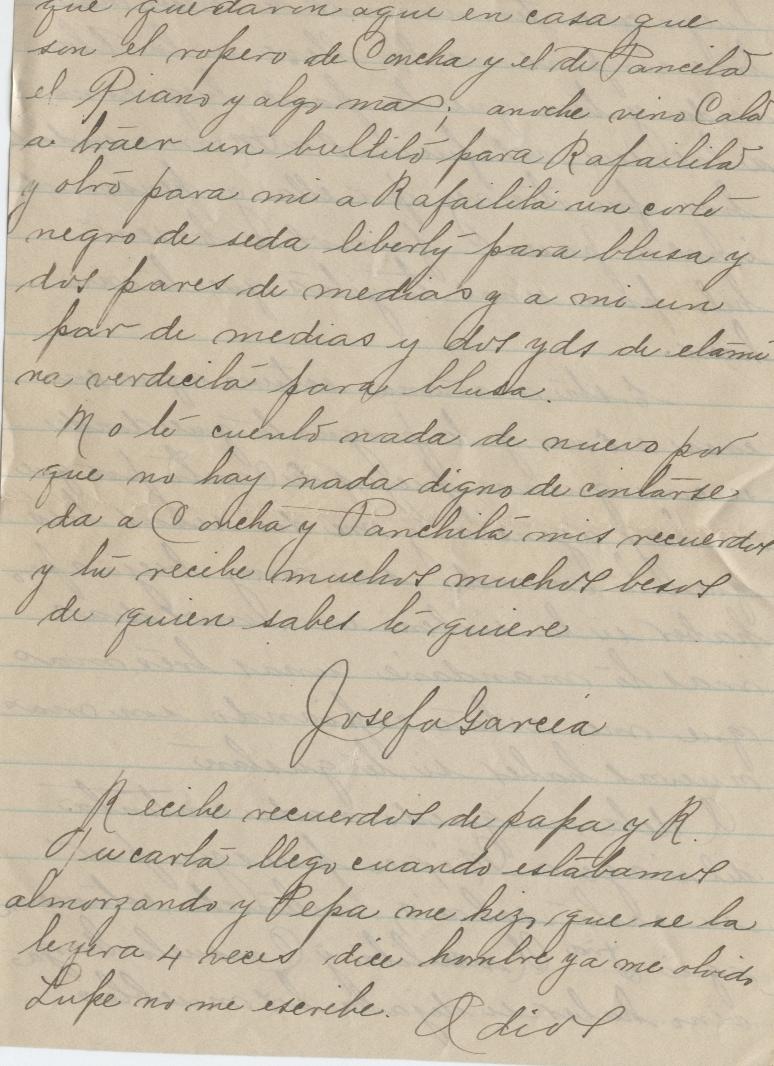 que quedaron aqui en casa que
son el ropero de Concha y el de Pancita
el Piano y algo mas; anoche vino Cata
a traer un bultito para Rafailita
y otro para mi a Rafailita un corte
negro de seda liberty para blusa y
dos pares de medias y a mi un
par de medias y dos yds de etami
na verdicita para blusa.
No te cuento nada de nuevo por
que no hay nada digno de contarse
da a Concha y Panchita mis recuerdos
y tu recibe muchos muchos besos
de quien sabes te quiere
Josefa Garcia
Recibe recuerdos de papa y R.
Tu carta llego cuando estabamos
almorzando y Pepa me hizo que se la
leyera 4 veces dice hombre ya me olvido
Lupe no me escribe. Adios